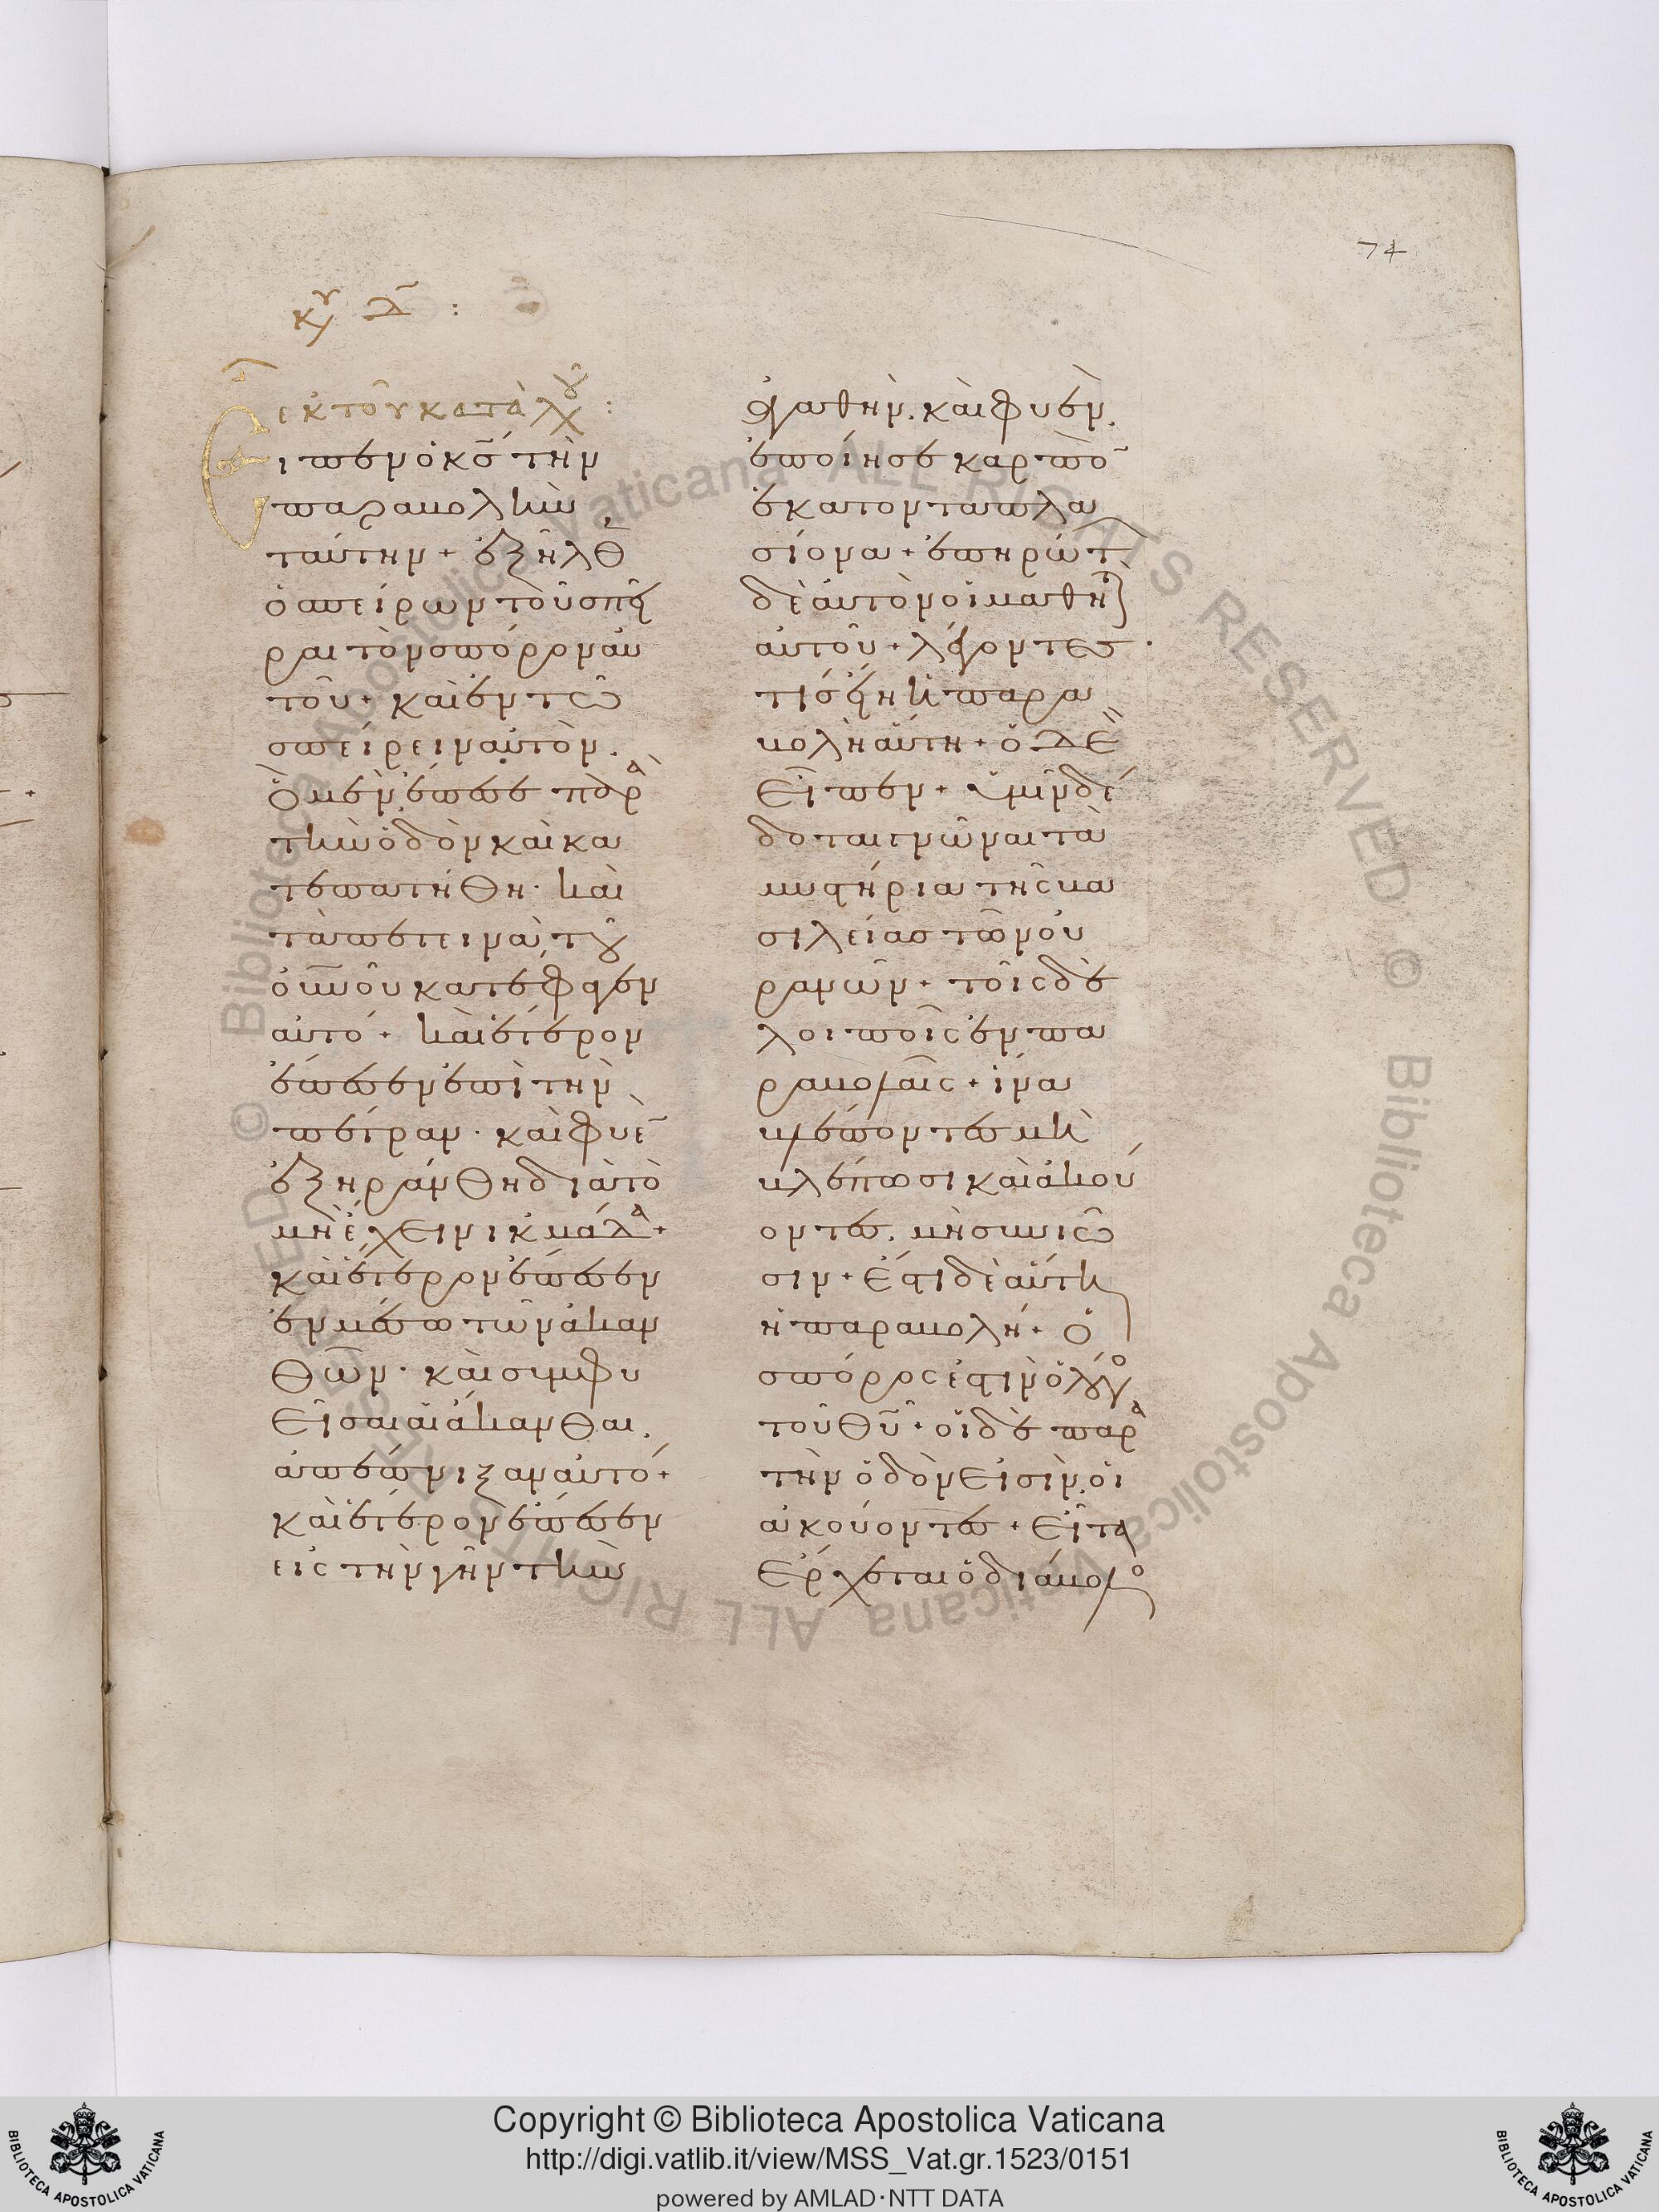 74
κυ δ :
ἐκ τοῦ κατὰ λου :
Εἶπεν ὁ κς τὴν
παραβολὴν
ταύτην + ἐξῆλθ
ὁ σπείρων τοῦ σπεῖ
ραι τὸν σπόρον αὐ
τοῦ + καὶ ἐν τῶ
σπείρειν αὐτὸν.
ὃ μὲν ἔπεσε παρὰ
τὴν ὁδὸν καὶ κα
τεπατήθη · καὶ
τὰ πετεινὰ τοῦ
οὐνοῦ κατέφαγεν
αὐτό + καὶ ἕτερον
ἔπεσεν ἐπὶ τὴν
πέτραν · καὶ φυὲ
ἐξηράνθη διὰ τὸ
μὴ ἔχειν ἰκμάδα +
καὶ ἕτερον ἔπεσεν
ἐν μέσω τῶν ἀκαν
θῶν · καὶ συμφυ
εῖσαι αἱ ἄκανθαι.
ἀπέπνιξαν αὐτό +
καὶ ἕτερον ἔπεσεν
εἰς τὴν γῆν τὴν
ἀγαθὴν. καὶ φυὲν.
ἐποίησε καρπὸ
ἑκατονταπλα
σίονα + ἐπηρώτ
δὲ αὐτὸν οἱ μαθη
αὐτοῦ + λέγοντες ·
τίς εἴη ἡ παρα
βολὴ αὕτη + ὁ δὲ
εἶπεν + ὑμῖν δέ
δοται γνῶναι τὰ
μυστήρια τῆς βα
σιλείας τῶν οὐ
ρανῶν + τοῖς δὲ
λοιποῖς ἐν πα
ραβολαῖς + ἵνα
βλέποντες μὴ
βλέπωσι καὶ ἀκού
οντες. μὴ συνιῶ
σιν + ἔστι δὲ αὕτη
ἡ παραβολή + ὁ
σπόρος ἐστὶν ὁ λόγος
τοῦ θυ + οἱ δὲ παρὰ
τὴν ὁδὸν εἰσὶν. οἱ
ἀκούοντες + εἶτα
ἔρχεται ὁ διάβολος
Copyright © Biblioteca Apostolica Vaticana
http://digi.vatlib.it/view/MSS_Vat.gr.1523/0151
powered by AMLAD·NTT DATA
BIBLIOTECA APOSTOLICA VATICANA
BIBLIOTECA APOSTOLICA VATICANA
© Biblioteca Apostolica Vaticana ALL RIGHTS RESERVED
© Biblioteca Apostolica Vaticana ALL RIGHTS RESERVED